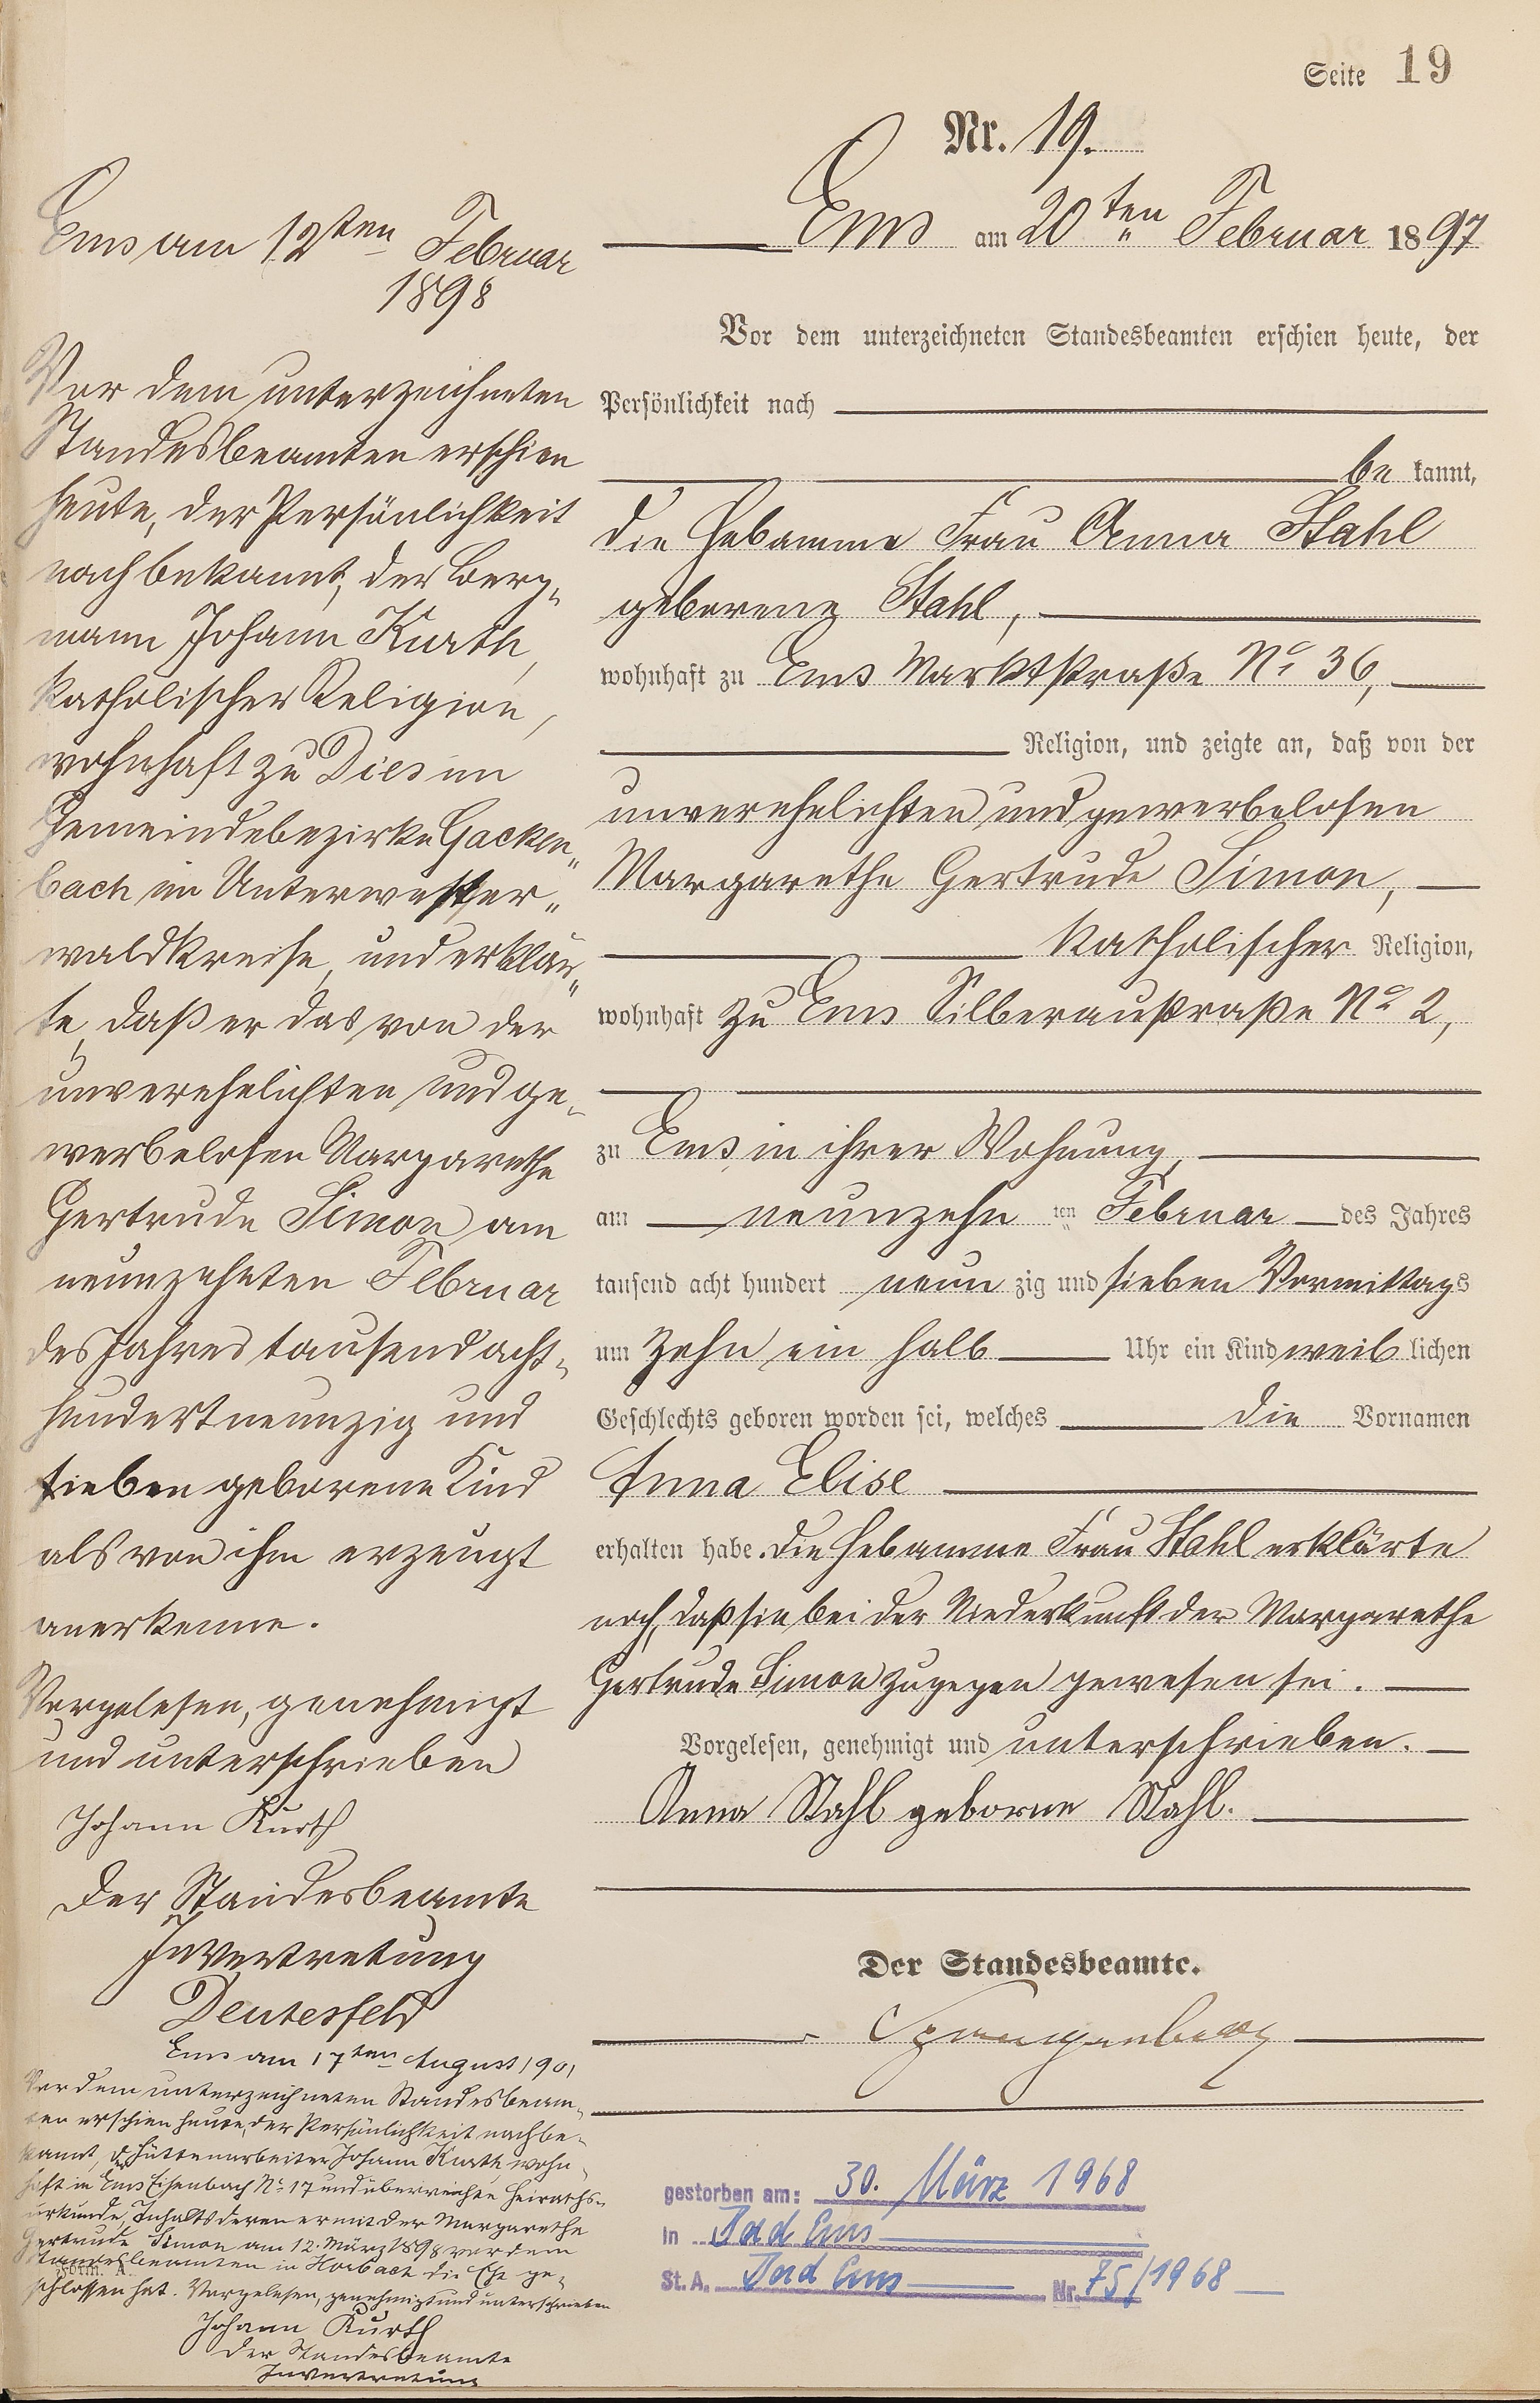 Seite 19
Nr. 19.
Ems am 20ten Februar 1897
Vor dem unterzeichneten Standesbeamten erschien heute, der
Persönlichkeit nach
be kannt,
die Hebamme Frau Anna Stahl
geborene Stahl,
wohnhaft zu Ems Marktstraße No 36,
Religion, und zeigte an, daß von der
unverehelichten und gewerbelosen
Margarethe Gertrude Simon,
katholischer Religion,
wohnhaft zu Ems Silberaustraße No 2,
zu Ems, in ihrer Wohnung,
am neunzehn ten Februar des Jahres
tausend acht hundert neun zig und sieben Vormittags
um zehn ein halb Uhr ein Kind weib lichen
Geschlechts geboren worden sei, welches die Vornamen
Anna Elise
erhalten habe. Die Hebamme Frau Stahl erklärte
noch, daß sie bei der Niederkunft der Margarethe
Gertrude Simon zugegen gewesen sei.
Vorgelesen, genehmigt und unterschrieben.
Anna Stahl geborne Stahl.
Der Standesbeamte.
Spangenberg
gestorben am: 30. März 1968
in Bad Ems
St. A. Bad Ems Nr. 75/1968
Ems am 12ten Februar
1898
Vor dem unterzeichneten
Standesbeamten erschien
heute, der Persönlichkeit
nach bekannt, der Berg-
mann Johann Kurth,
katholischer Religion,
wohnhaft zu Dies im
Gemeindebezirke Gacken-
bach im Unterwester-
waldkreise, und erklär-
te, daß er das von der
unverehelichten und ge-
werbelosen Margarethe
Gertrude Simon am
neunzehnten Februar
des Jahres tausend acht-
hundert neunzig und
sieben geborene Kind
als von ihm erzeugt
anerkenne.
Vorgelesen, genehmigt
und unterschrieben
Johann Kurth
Der Standesbeamte
In Vertretung
Deutesfeld
Ems am 17ten August 1901
Vor dem unterzeichneten Standesbeam-
ten erschien heute, der Persönlichkeit nach be-
kannt, der Hüttenarbeiter Johann Kurth, wohn-
haft in Ems Eisenbach No 17 und überreichte Heiraths-
urkunde, Inhalts deren er mit der Margarethe
Gertrude Simon am 12. März 1898 vor dem
Standesbeamten in Horbach die Ehe ge-
Form. A.
schlossen hat. Vorgelesen, genehmigt und unterschrieben
Johann Kurth
Der Standesbeamte
In Vertretung